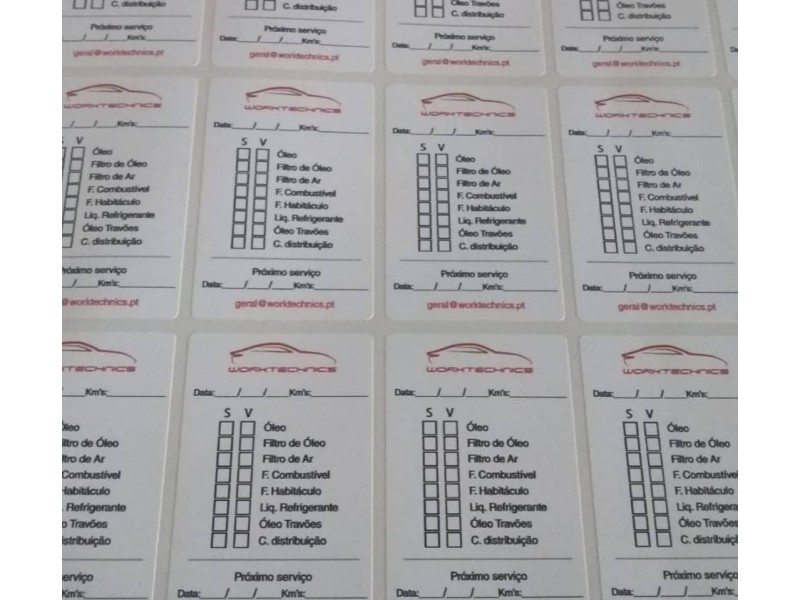 C. distribuição
Próximo serviço
Data:___/___/___Km's:______
geral@worktechnics.pt
C. distribuição
Próximo serviço
Data:___/___/___Km's:______
geral@worktechnics.pt
Óleo Travões
C. distribuição
Próximo serviço
Data:___/___/___Km's:______
geral@worktechnics.pt
Óleo Travões
C. distribuição
Próximo serviço
Data:___/___/___Km's:______
geral@worktechnics.pt
WORKTECHNICS
/___/___Km's:______
S V
Óleo
Filtro de Óleo
Filtro de Ar
F. Combustível
F. Habitáculo
Liq. Refrigerante
Óleo Travões
C. distribuição
Próximo serviço
/___/___Km's:______
@worktechnics.pt
WORKTECHNICS
Data:___/___/___Km's:______
S V
Óleo
Filtro de Óleo
Filtro de Ar
F. Combustível
F. Habitáculo
Liq. Refrigerante
Óleo Travões
C. distribuição
Próximo serviço
Data:___/___/___Km's:______
geral@worktechnics.pt
WORKTECHNICS
Data:___/___/___Km's:______
S V
Óleo
Filtro de Óleo
Filtro de Ar
F. Combustível
F. Habitáculo
Liq. Refrigerante
Óleo Travões
C. distribuição
Próximo serviço
Data:___/___/___Km's:______
geral@worktechnics.pt
WORKTECHNICS
Data:___/___/___Km's:______
S V
Óleo
Filtro de Óleo
Filtro de Ar
F. Combustível
F. Habitáculo
Liq. Refrigerante
Óleo Travões
C. distribuição
Próximo serviço
Data:___/___/___Km's:______
geral@worktechnics.pt
WORKTECHNICS
/___/___Km's:______
Óleo
Filtro de Óleo
Filtro de Ar
F. Combustível
Habitáculo
Liq. Refrigerante
Travões
distribuição
serviço
/___/___Km's:______
WORKTECHNICS
Data:___/___/___Km's:______
S V
Óleo
Filtro de Óleo
Filtro de Ar
F. Combustível
F. Habitáculo
Liq. Refrigerante
Óleo Travões
C. distribuição
Próximo serviço
Data:___/___/___Km's:______
WORKTECHNICS
Data:___/___/___Km's:______
S V
Óleo
Filtro de Óleo
Filtro de Ar
F. Combustível
F. Habitáculo
Liq. Refrigerante
Óleo Travões
C. distribuição
Próximo serviço
Data:___/___/___Km's:______
WORKTECHNICS
Data:___/___/___Km's:______
S V
Óleo
Filtro de Óleo
Filtro de Ar
F. Combustível
F. Habitáculo
Liq. Refrigera
Óleo Travões
C. distribuição
Próximo serviço
Data:___/___/___Km's: